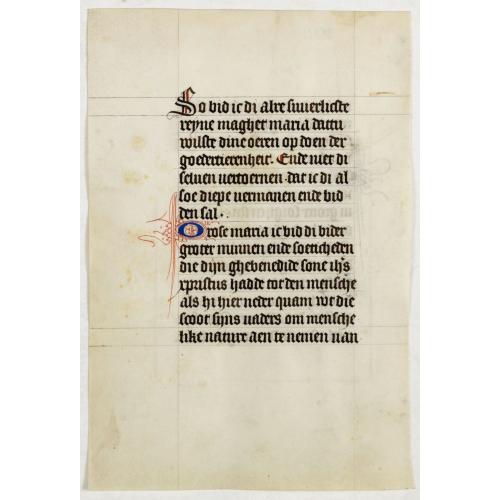 So bid ic di alre suuerlicste
reyne maghet maria dattu
wilste dine oeren op doen der
goedertierenheit. Ende niet di
seluen uertoernen dat ic di al
soe diepe uermanen ende bid
den sal.
O rose maria ic bid di bider
groter minnen ende soeticheden
die dijn ghebenedide sone ihs
xpristus hadde tot den mensche
als hi hier neder quam wt die
scoot sijns uaders om mensche
like nature aen te nemen uan